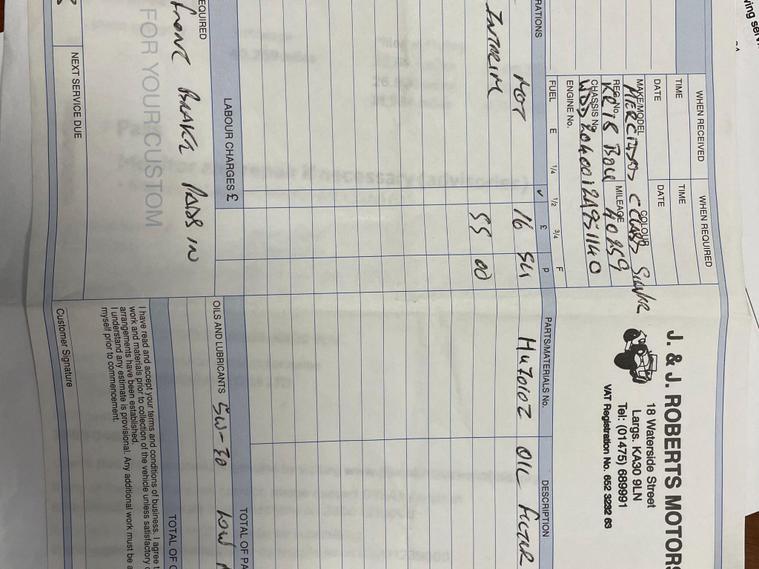 J. & J. ROBERTS MOTORS
18 Waterside Street
Largs. KA30 9LN
Tel: (01475) 689991
VAT Registration No. 652 3232 63
WHEN RECEIVED
WHEN REQUIRED
TIME
TIME
DATE
DATE
MAKE/MODEL
COLOUR
MERCEDES C CLASS SILVER
REG. No.
MILEAGE
40259
CHASSIS No.
ENGINE No.
FUEL E 1/4 1/2 3/4 F
RATIONS
£ P
PARTS/MATERIALS No.
DESCRIPTION
MOT
OIL FILTER
INTERIM
55 00
LABOUR CHARGES £
TOTAL OF PA
OILS AND LUBRICANTS 5W-30 LOW
EQUIRED
FRONT BRAKE PADS IN
FOR YOUR CUSTOM
TOTAL OF
I have read and accept your terms and conditions of business. I agree
work and materials prior to collection of the vehicle unless satisfactory
arrangements have been established.
I understand any estimate is provisional. Any additional work must be a
myself prior to commencement.
NEXT SERVICE DUE
Customer Signature